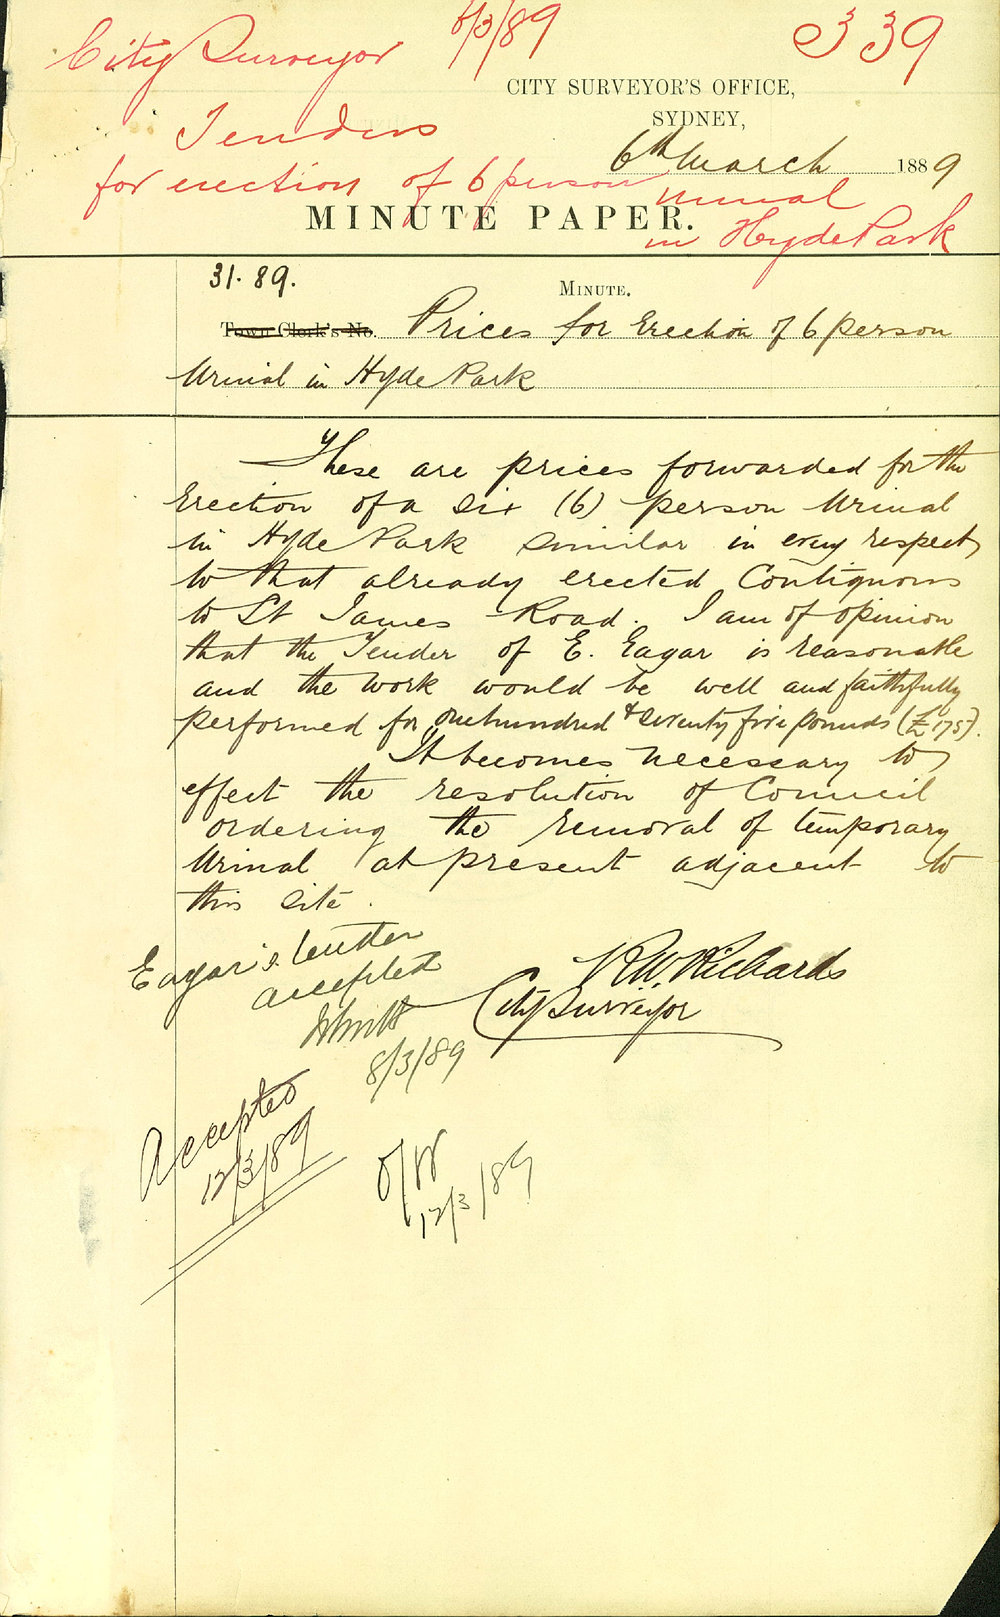 City Surveyor 6/3/89 339
CITY SURVEYOR'S OFFICE,
SYDNEY,
Tenders
6th March 1889
for erection of 6 person urinal
MINUTE PAPER.
in Hyde Park
31. 89.
MINUTE.
Town Clerk's No. Prices for Erection of 6 person
Urinal in Hyde Park
These are prices forwarded for the
Erection of a six (6) person Urinal
in Hyde Park similar in every respect
to that already erected Contiguous
to St James Road. I am of opinion
that the Tender of E. Eagar is reasonable
and the work would be well and faithfully
performed for one hundred & seventy five pounds (£175).
It becomes necessary to
effect the resolution of Council
ordering the removal of temporary
Urinal at present adjacent to
this site.
Eagar's tender
accepted
R.W. Richards
City Surveyor
8/3/89
Accepted
12/3/89
12/3/89